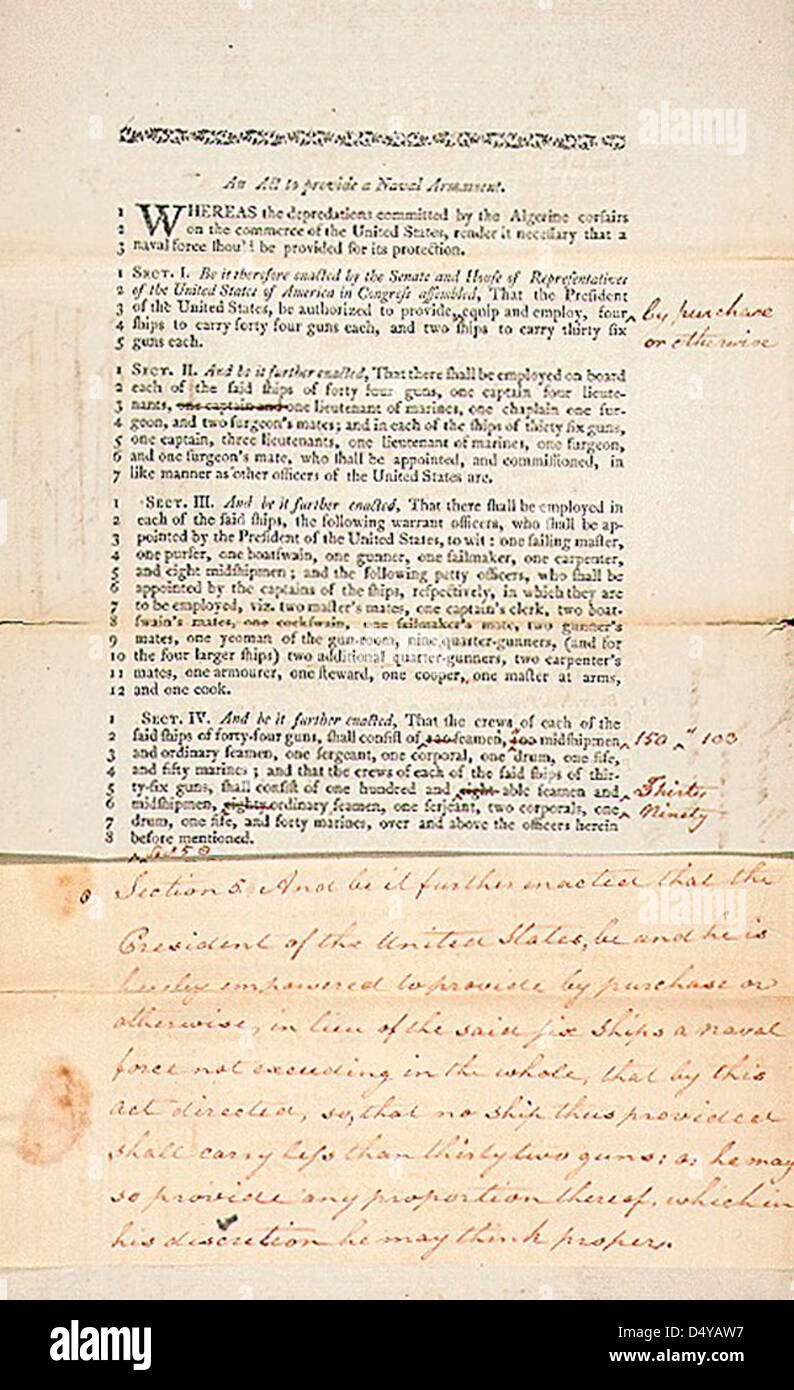 An Act to provide a Naval Armament.
1 WHEREAS the depredations committed by the Algerine corsairs
2 on the commerce of the United States, render it necessary that a
3 naval force should be provided for its protection.
1 SECT. I. Be it therefore enacted by the Senate and House of Representatives
2 of the United States of America in Congress assembled, That the President
3 of the United States, be authorized to provide, equip and employ, four by purchase
4 ships to carry forty four guns each, and two ships to carry thirty six or otherwise
5 guns each.
1 SECT. II. And be it further enacted, That there shall be employed on board
2 each of the said ships of forty four guns, one captain four lieute-
3 nants, one captain and one lieutenant of marines, one chaplain one sur-
4 geon, and two surgeon's mates; and in each of the ships of thirty six guns,
5 one captain, three lieutenants, one lieutenant of marines, one surgeon,
6 and one surgeon's mate, who shall be appointed, and commissioned, in
7 like manner as other officers of the United States are.
1 SECT. III. And be it further enacted, That there shall be employed in
2 each of the said ships, the following warrant officers, who shall be ap-
3 pointed by the President of the United States, to wit: one sailing master,
4 one purser, one boatswain, one gunner, one sailmaker, one carpenter,
5 and eight midshipmen; and the following petty officers, who shall be
6 appointed by the captains of the ships, respectively, in which they are
7 to be employed, viz. two master's mates, one captain's clerk, two boat-
8 swain's mates, one cockswain, one sailmaker's mate, two gunner's
9 mates, one yeoman of the gun-room, nine quarter-gunners, (and for
10 the four larger ships) two additional quarter-gunners, two carpenter's
11 mates, one armourer, one steward, one cooper, one master at arms,
12 and one cook.
1 SECT. IV. And be it further enacted, That the crews of each of the
2 said ships of forty-four guns, shall consist of seamen, midshipmen 150 " 103
3 and ordinary seamen, one sergeant, one corporal, one drum, one fife,
4 and fifty marines; and that the crews of each of the said ships of thir-
5 ty-six guns, shall consist of one hundred and eight able seamen and Thirty
6 midshipmen, eighty ordinary seamen, one serjeant, two corporals, one Ninety
7 drum, one fife, and forty marines, over and above the officers herein
8 before mentioned.
Section 5. And be it further enacted that the
President of the United States, be and he is
hereby empowered to provide by purchase or
otherwise, in lieu of the said six ships a naval
force not exceeding in the whole, that by this
act directed, so, that no ship thus provided
shall carry less than thirty two guns; or he may
so provide any proportion thereof, which in
his discretion he may think proper.
alamy
Image ID: D4YAW7
www.alamy.com